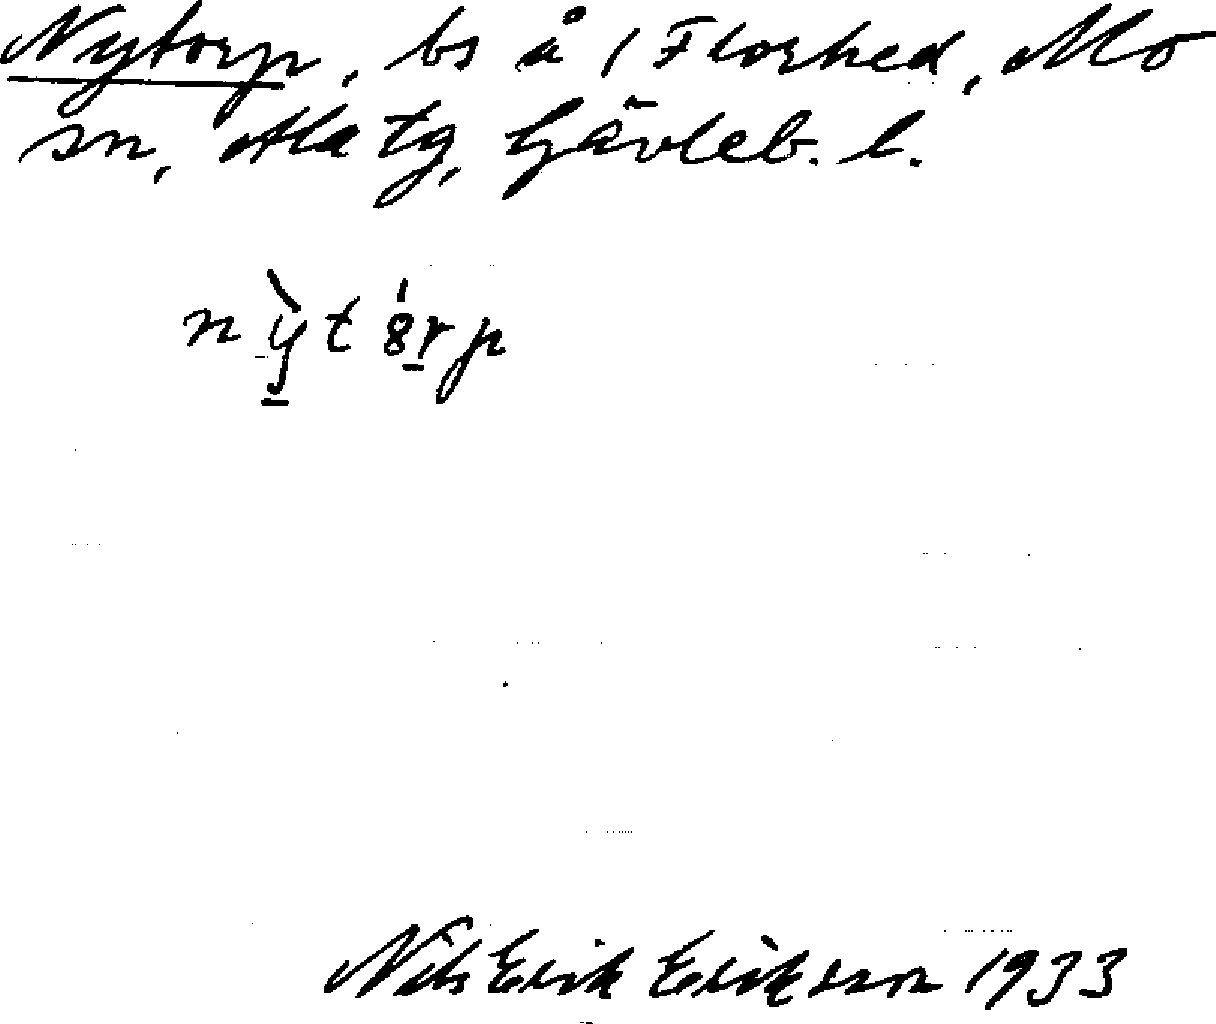 Nytorp, bs å 1 Florhed, Mo
sn, Ala tg, Gävleb. l.
nỳt8́rp
Nils Erik Eriksson 1933